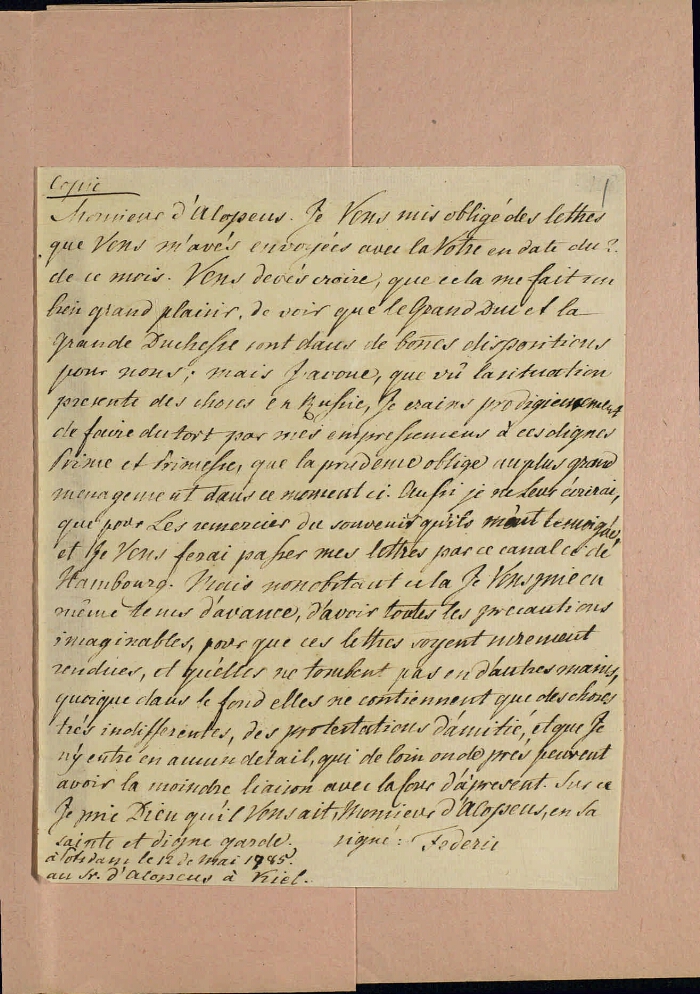 Copie
1
Monsieur d'Alopeus. Je Vous suis obligé des lettres
que Vous m'avés envoyées avec la Votre en date du 2.
de ce mois. Vous devés croire, que cela me fait un
bien grand plaisir, de voir que le Grand Duc et la
Grande Duchesse sont dans de bonnes dispositions
pour nous; mais J'avoue, que vû la situation
presente des choses en Russie, Je crains prodigieusement
de faire du tort par mes empressemens à ces dignes
Prince et Princesse, que la prudence oblige au plus grand
menagement dans ce moment ci. Aussi je ne leur écrirai,
que pour Les remercier du souvenir qu'ils m'ont temoigné,
et Je Vous ferai passer mes lettres par ce canal ci de
Hambourg. Mais nonobstant cela Je Vous prie en
même tems d'avance, d'avoir toutes les precautions
imaginables, pour que ces lettres soyent surement
rendues, et qu'elles ne tombent pas en d'autres mains,
quoique dans le fond elles ne contiennent que des choses
très indifferentes, des protestations d'amitié, et que Je
n'y entre en aucun detail, qui de loin ou de près peuvent
avoir la moindre liaison avec la Cour d'apresent. Sur ce
Je prie Dieu qu'il Vous ait, Monsieur d'Alopeus, en sa
sainte et digne garde. signé: Federic
à Potsdam le 12 de Mai 1785.
au Sr. d'Alopeus à Kiel.